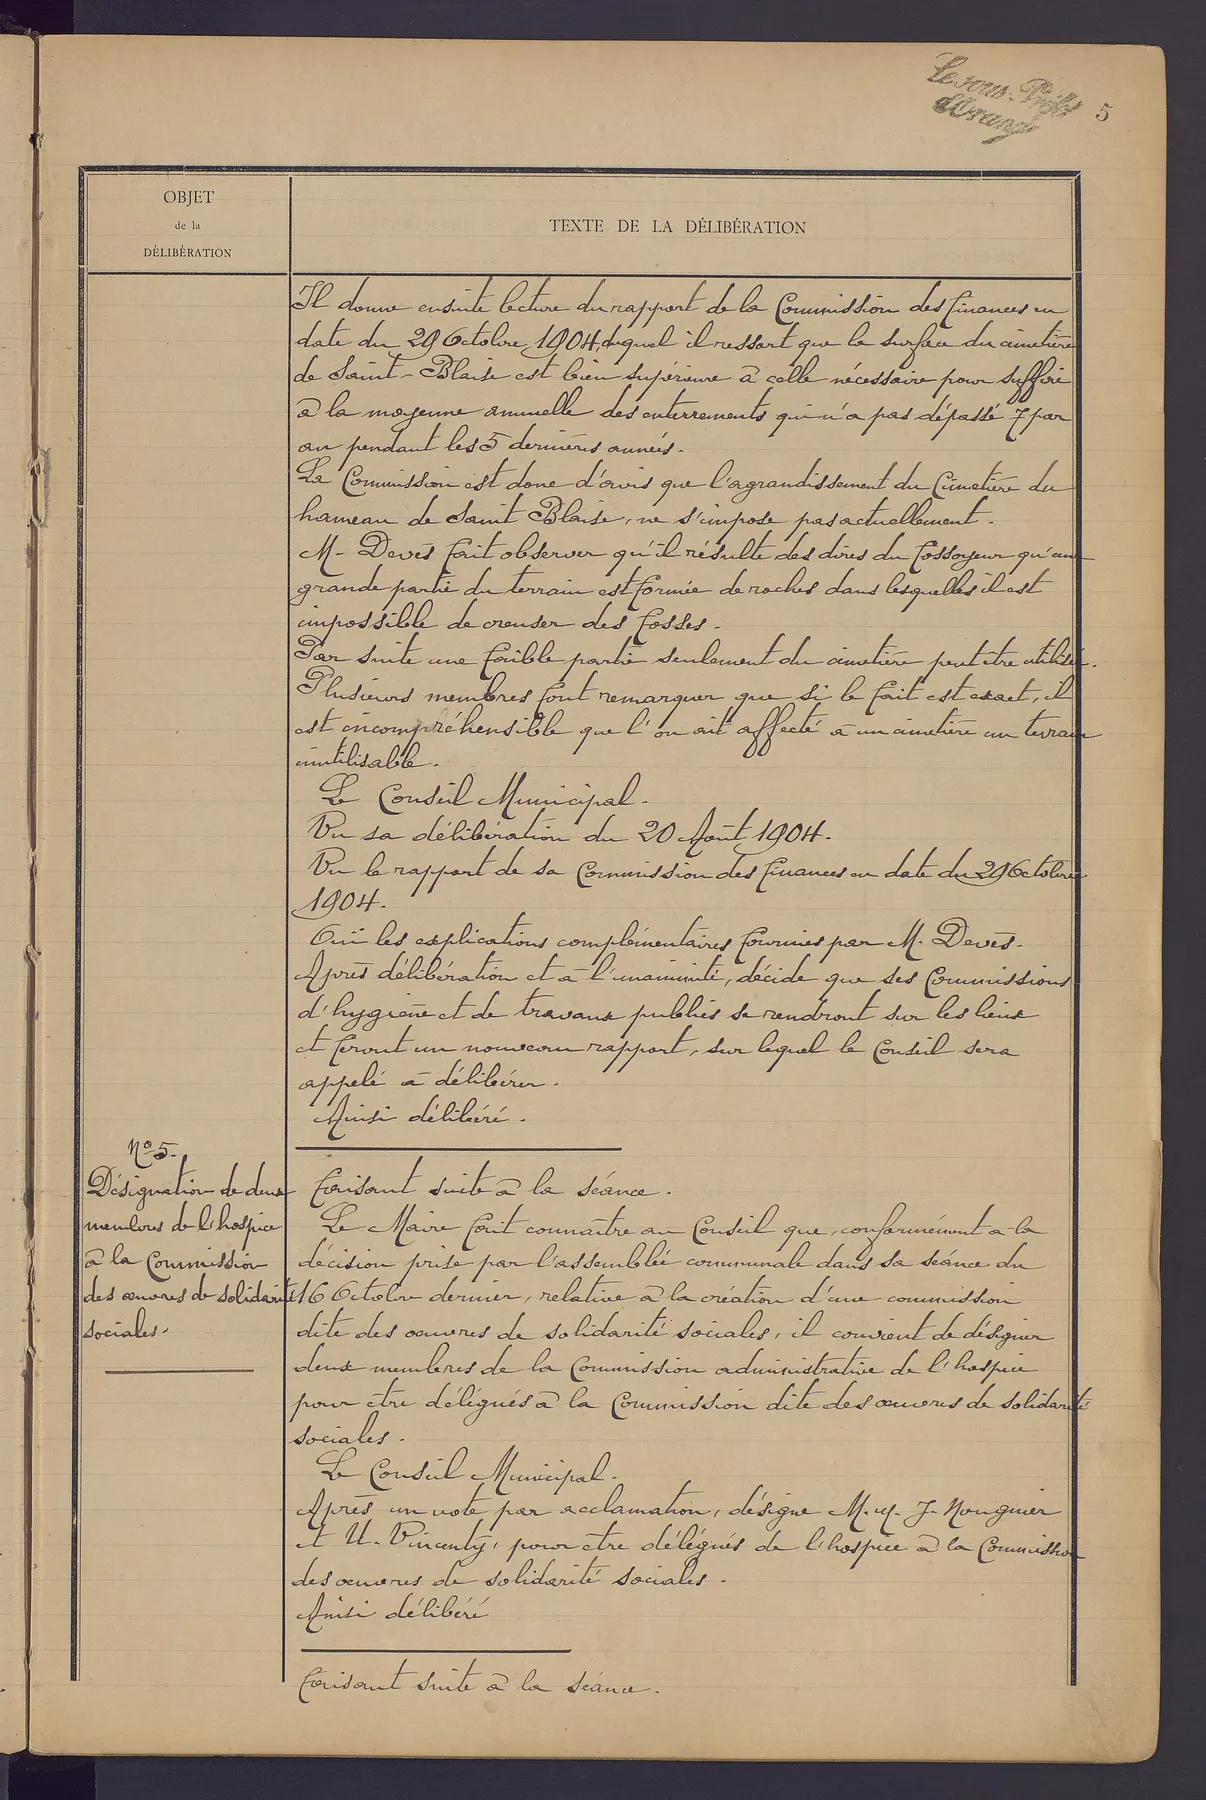 Le sous-Préfet
d'Orange
5
OBJET
de la
DÉLIBÉRATION
TEXTE DE LA DÉLIBÉRATION
Il donne ensuite lecture du rapport de la Commission des Finances en
date du 29 Octobre 1904, duquel il ressort que la surface du cimetière
de Saint-Blaise est bien supérieure à celle nécessaire pour suffire
à la moyenne annuelle des enterrements qui n'a pas dépassé 7 par
an pendant les 5 dernières années.
La Commission est donc d'avis que l'agrandissement du Cimetière du
hameau de Saint Blaise, ne s'impose pas actuellement.
M. Devès fait observer qu'il résulte des dires du fossoyeur qu'une
grande partie du terrain est formée de roches dans lesquelles il est
impossible de creuser des fosses.
Par suite une faible partie seulement du cimetière peut être utilisée.
Plusieurs membres font remarquer que si le fait est exact, il
est incompréhensible que l'on ait affecté à un cimetière un terrain
inutilisable.
Le Conseil Municipal.
Vu sa délibération du 20 Août 1904.
Vu le rapport de sa Commission des Finances en date du 29 Octobre
1904.
Ouï les explications complémentaires fournies par M. Devès.
Après délibération et à l'unanimité, décide que ses Commissions
d'hygiène et de travaux publics se rendront sur les lieux
et feront un nouveau rapport, sur lequel le Conseil sera
appelé à délibérer.
Ainsi délibéré.
No 5.
Désignation de deux
membres de l'hospice
à la Commission
des œuvres de solidarité
sociales.
Faisant suite à la séance.
Le Maire fait connaître au Conseil que, conformément à la
décision prise par l'assemblée communale dans sa séance du
16 Octobre dernier, relative à la création d'une commission
dite des œuvres de solidarité sociales, il convient de désigner
deux membres de la Commission administrative de l'hospice
pour être délégués à la Commission dite des œuvres de solidarité
sociales.
Le Conseil Municipal.
Après un vote par acclamation, désigne M.M. J. Nouguier
et U. Vincenty, pour être délégués de l'hospice à la Commission
des œuvres de solidarité sociales.
Ainsi délibéré
Faisant suite à la séance.